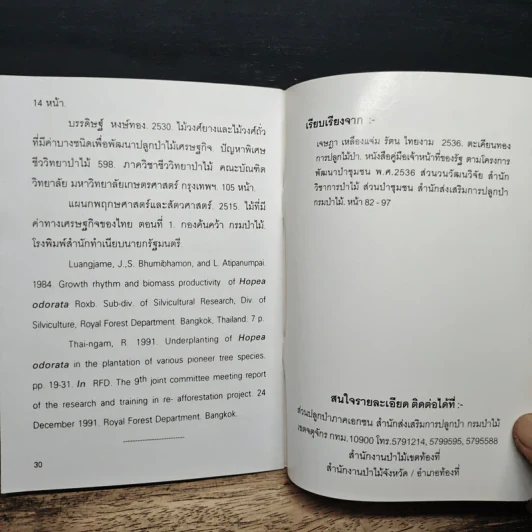 14 หน้า.
บรรดิษฐ์ หงษ์ทอง. 2530. ไม้วงศ์ยางและไม้วงศ์ถั่ว
ที่มีค่าบางชนิดเพื่อพัฒนาปลูกป่าไม้เศรษฐกิจ. ปัญหาพิเศษ
ชีววิทยาป่าไม้ 598. ภาควิชาชีววิทยาป่าไม้ คณะบัณฑิต
วิทยาลัย มหาวิทยาลัยเกษตรศาสตร์ กรุงเทพฯ. 105 หน้า.
แผนกพฤกษศาสตร์และสัตวศาสตร์. 2515. ไม้ที่มี
ค่าทางเศรษฐกิจของไทย ตอนที่ 1. กองค้นคว้า กรมป่าไม้.
โรงพิมพ์สำนักทำเนียบนายกรัฐมนตรี
Luangjame, J.,S. Bhumibhamon, and L. Atipanumpai.
1984. Growth rhythm and biomass productivity of Hopea
odorata Roxb. Sub-div. of Silvicultural Research, Div. of
Silviculture, Royal Forest Department. Bangkok, Thailand. 7 p.
Thai-ngam, R. 1991. Underplanting of Hopea
odorata in the plantation of various pioneer tree species.
pp. 19-31. In RFD. The 9th joint committee meeting report
of the research and training in re- afforestation project 24
December 1991. Royal Forest Department. Bangkok.
30
เรียบเรียงจาก :-
เจษฎา เหลืองแจ่ม รัตน ไทยงาม 2536. ตะเคียนทอง
การปลูกไม้ป่า. หนังสือคู่มือเจ้าหน้าที่ของรัฐ ตามโครงการ
พัฒนาป่าชุมชน พ.ศ.2536 ส่วนวนวัฒนวิจัย สำนัก
วิชาการป่าไม้ ส่วนป่าชุมชน สำนักส่งเสริมการปลูกป่า
กรมป่าไม้. หน้า 82 - 97
สนใจรายละเอียด ติดต่อได้ที่ :-
ส่วนปลูกป่าภาคเอกชน สำนักส่งเสริมการปลูกป่า กรมป่าไม้
เขตจตุจักร กทม. 10900 โทร.5791214, 5799595, 5795588
สำนักงานป่าไม้เขตท้องที่
สำนักงานป่าไม้จังหวัด / อำเภอท้องที่